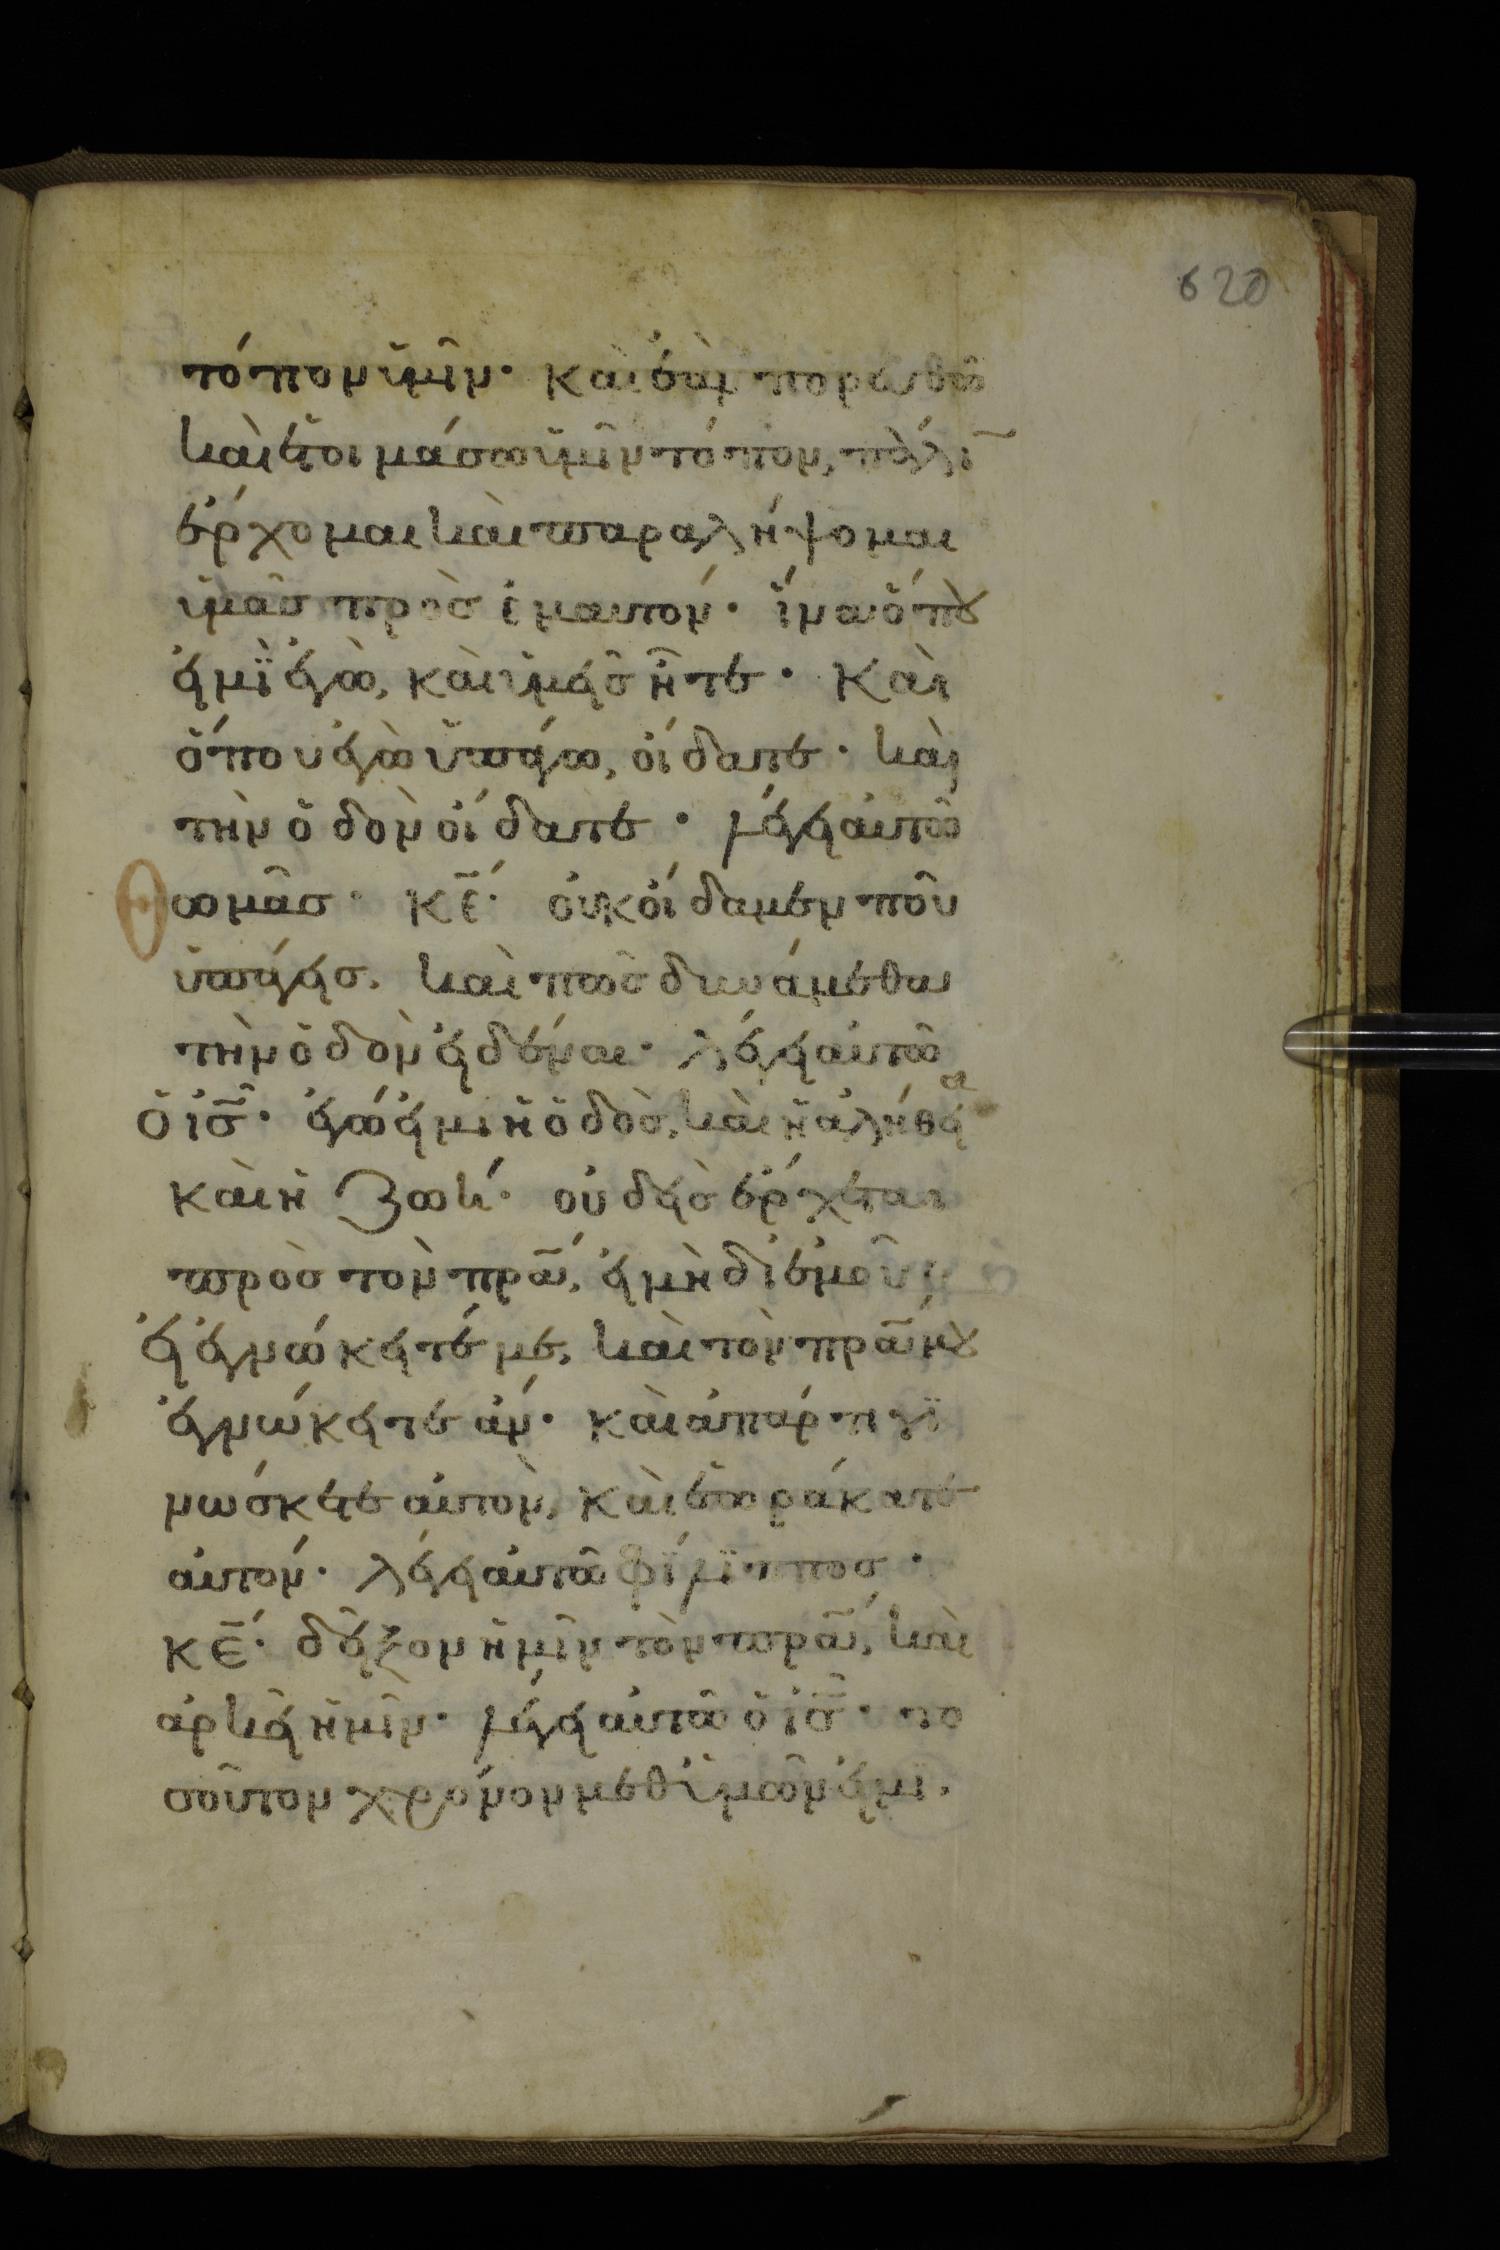 620
τόπον ὑμῖν· καὶ ἐὰν πορευθῶ
καὶ ἑτοιμάσω ὑμῖν τόπον, πάλι̅
ἔρχομαι καὶ παραλήψομαι
ὑμᾶσ πρὸσ ἐμαυτόν· ἵνα ὅπου
εἰμῒ ἐγὼ, καὶ ὑμεῖσ ἦτε· Καὶ
ὅπου ἐγὼ ὑπάγω, οἴδατε· καὶ
τὴν ὁδὸν οἴδατε· λέγει αὐτῶ
Θωμᾶσ· κ̅ε̅· οὐκ οἴδαμεν ποῦ
ὑπάγεισ. καὶ πῶσ δυνάμεθα
τὴν ὁδὸν εἰδέναι· λέγει αὐτῶ
ὁ ι̅σ̅· ἐγώ εἰμι ἡ ὁδὸσ, καὶ ἡ ἀλήθεια
καὶ ἡ ζωή· οὐδεὶσ ἔρχεται
πρὸσ τὸν π̅ρ̅α̅, εἰ μὴ δι ἐμοῦ
Εἰ ἐγνώκειτέ με, καὶ τὸν π̅ρ̅α̅ μου
ἐγνώκειτε ἄν· καὶ ἀπάρτι γϊ
νώσκετε αὐτὸν, καὶ ἑωράκατε
αὐτόν· λέγει αὐτῶ φίλϊπποσ·
κ̅ε̅· δεῖξον ἡμῖν τὸν π̅ρ̅α̅, καὶ
ἀρκεῖ ἡμῖν· λέγει αὐτῶ ὁ ι̅σ̅· το
σοῦτον χρόνον μεθ ὑμῶν εἰμϊ.